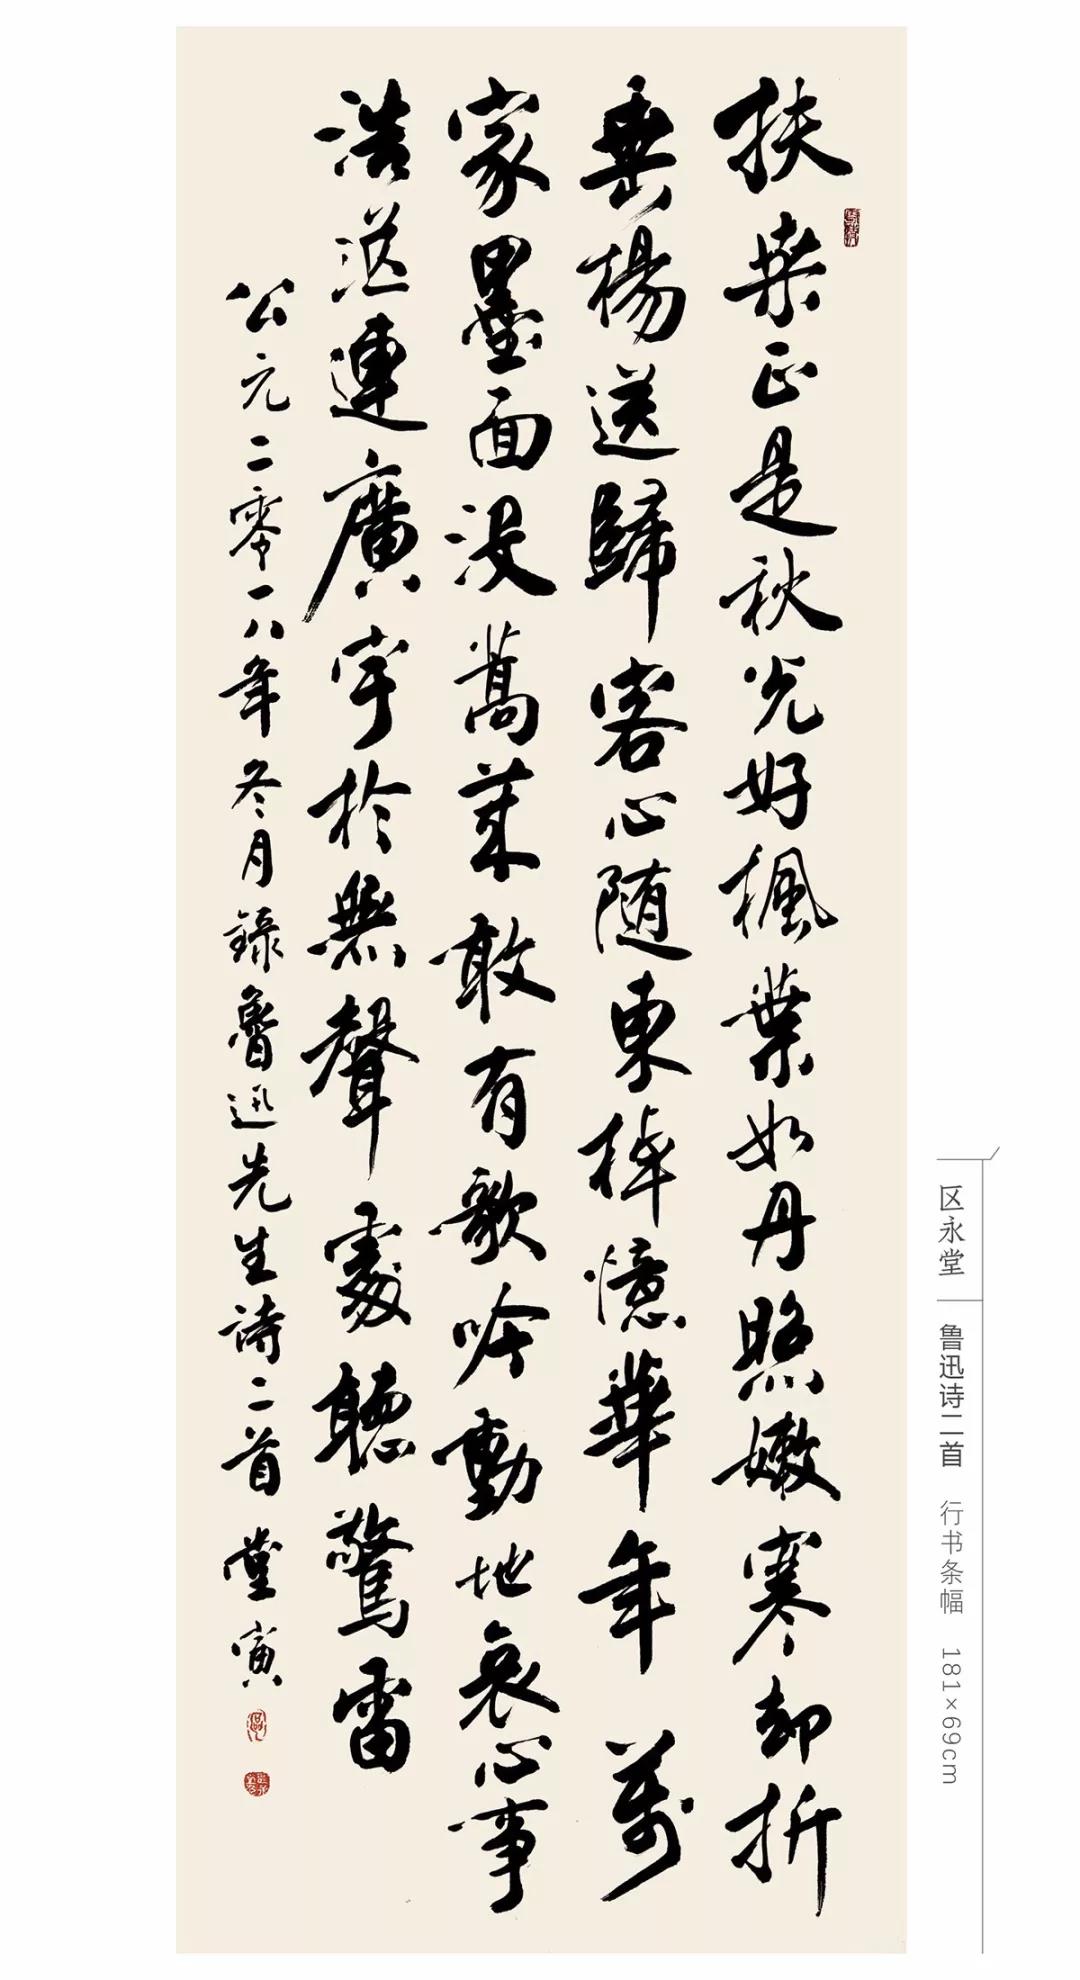 扶桑正是秋光好楓葉如丹照嫩寒却折
垂楊送歸客心随東棹憶華年 萬
家墨面没蒿萊敢有歌吟動地哀心事
浩茫連廣宇於無聲處聽驚雷
公元二零一八年冬月錄魯迅先生詩二首 堂寅
区永堂
鲁迅诗二首 行书条幅 181×69cm